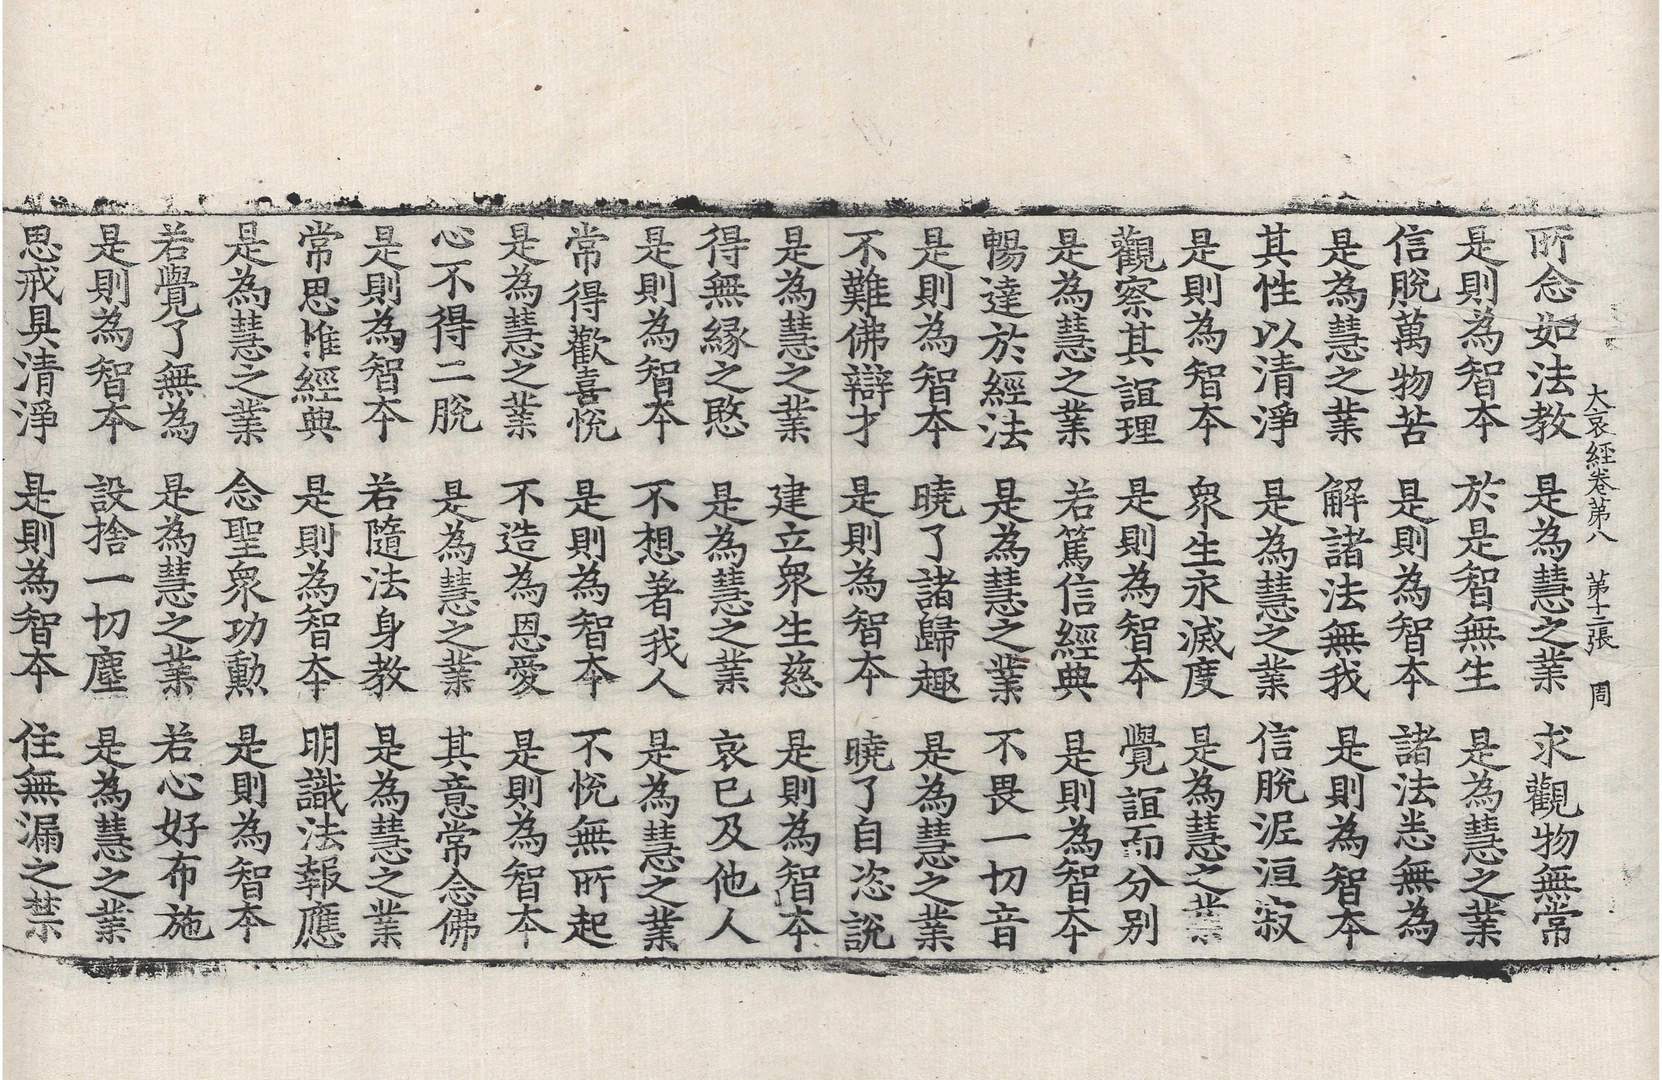 大哀經卷第八　第十二張　周
所念如法教　是為慧之業　求觀物無常
是則為智本　於是智無生　是為慧之業
信脫萬物苦　是則為智本　諸法悉無為
是為慧之業　解諸法無我　是則為智本
其性以清淨　是為慧之業　信脫泥洹寂
是則為智本　衆生永滅度　是為慧之業
觀察其誼理　是則為智本　覺誼而分別
是為慧之業　若篤信經典　是則為智本
暢達於經法　是為慧之業　不畏一切音
是則為智本　曉了諸歸趣　是為慧之業
不難佛辯才　是則為智本　曉了自恣說
是為慧之業　建立衆生慈　是則為智本
得無緣之愍　是為慧之業　哀已及他人
是則為智本　不想著我人　是為慧之業
常得歡喜悅　是則為智本　不悅無所起
是為慧之業　不造為恩愛　是則為智本
心不得二脫　是為慧之業　其意常念佛
是則為智本　若隨法身教　是為慧之業
常思惟經典　是則為智本　明識法報應
是為慧之業　念聖衆功勳　是則為智本
若覺了無為　是為慧之業　若心好布施
是則為智本　設捨一切塵　是為慧之業
思戒具清淨　是則為智本　住無漏之禁